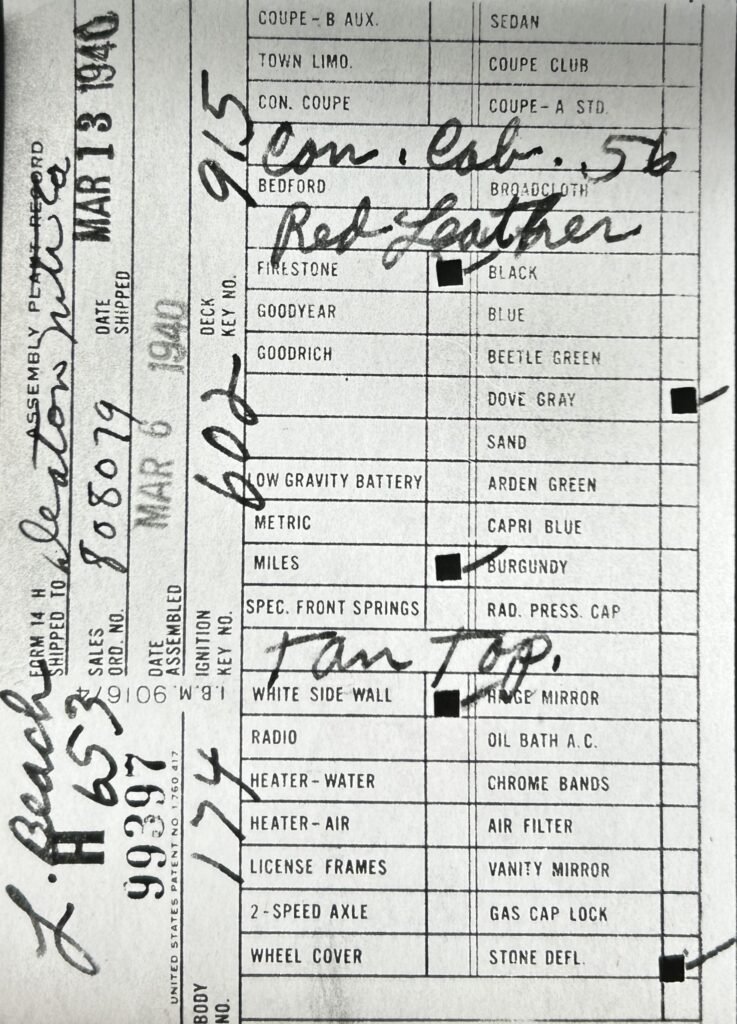 FORM 14 H ASSEMBLY PLANT RECORD
SHIPPED TO
SALES ORD. NO. 808079
DATE SHIPPED MAR 13 1940
DATE ASSEMBLED MAR 6 1940
IGNITION KEY NO. 602
DECK KEY NO. 915
I.B.M. 901674
L. Beach
H 653
99397
UNITED STATES PATENT NO. 1 760 417
BODY NO. 174
COUPE-B AUX. SEDAN
TOWN LIMO. COUPE CLUB
CON. COUPE COUPE-A STD.
Con. Cab. 56
BEDFORD BROADCLOTH
Red Leather
FIRESTONE BLACK
GOODYEAR BLUE
GOODRICH BEETLE GREEN
DOVE GRAY
SAND
LOW GRAVITY BATTERY ARDEN GREEN
METRIC CAPRI BLUE
MILES BURGUNDY
SPEC. FRONT SPRINGS RAD. PRESS. CAP
Tan Top.
WHITE SIDE WALL HINGE MIRROR
RADIO OIL BATH A.C.
HEATER-WATER CHROME BANDS
HEATER-AIR AIR FILTER
LICENSE FRAMES VANITY MIRROR
2-SPEED AXLE GAS CAP LOCK
WHEEL COVER STONE DEFL.